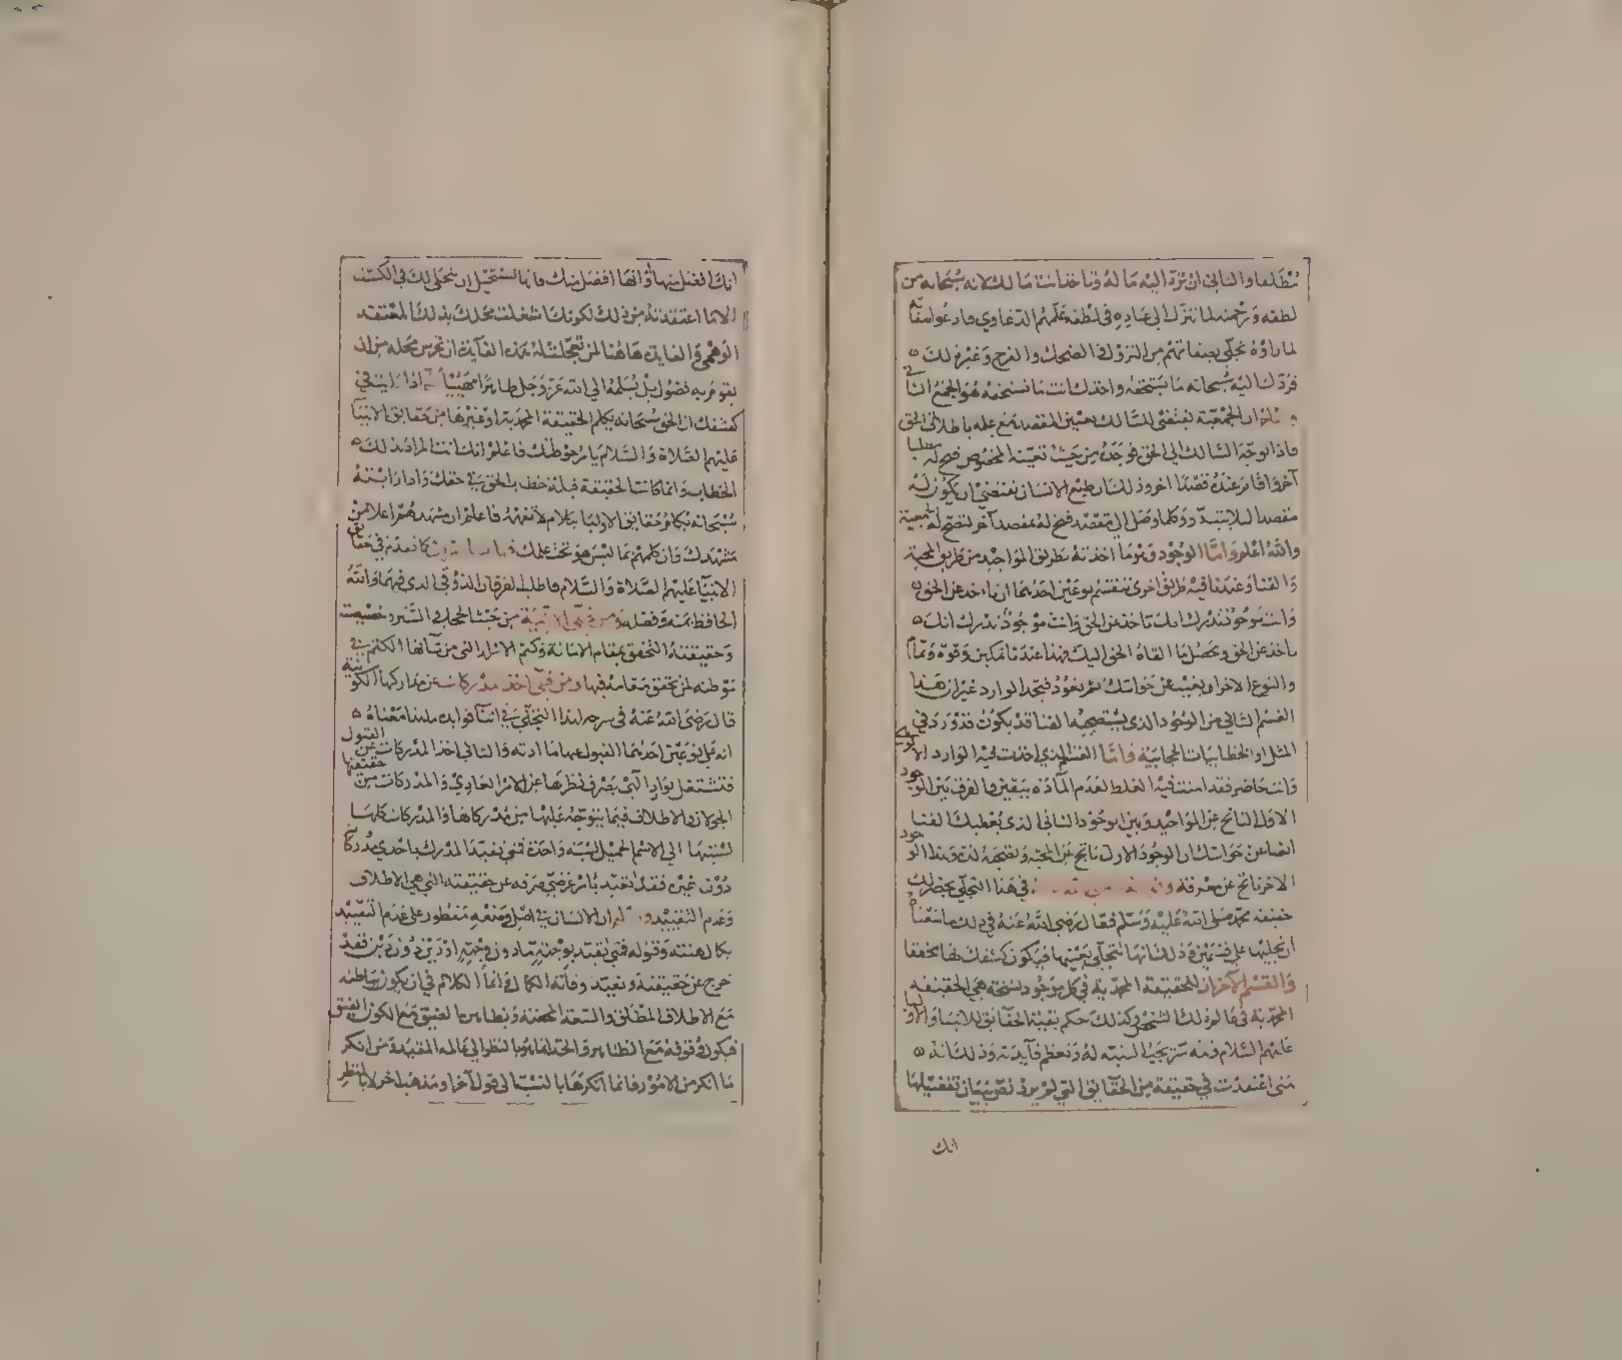 لطفه ورحمته لما تنزل الى عباده في لطفه علمهم الدعاوي فادعوا صفاته
لما راوه تجلى بصفاتهم من النزول في الضحك والفرح وغير ذلك
فرد اليه سبحانه ما يستحقه واخذك انت ما تستحقه هو الجمع الثاني
ان الجمعية تقتضي للسالك تعيين المقصد مع علمه باطلاق الحق
فاذا توجه السالك الى الحق فوجده من حيث تعينه المخصوص فتح له مطلبا
آخر واقام عنده قصدا اخر وذلك لان طبع الانسان يقتضي ان يكون له
مقصدا لئلا يتبدد وكلما وصل الى مقصد فتح له بمقصد آخر لتصح له الجمعية
والله اعلم واما الوجود وثم ما اخذته بطريق المواجيد من طريق المحبة
والفنا وعندنا فيه طرق اخرى تنقسم نوعين احدهما ان ياخذ عن الحق
وانت موجود تدرك انك تاخذ عن الحق وانت موجود تدرك انك
ماخذ عن الحق وتحصل ما القاه الحق اليك فهذا عندنا تمكين وقوة وثما
والنوع الاخر ان يغيب عن حواسك ثم تعود فتجد الوارد غير ان هذا
القسم الثاني من الوجود الذي يستصحبه الفنا قد يكون قد ورد في
المثل او الخطابيات الحجابية فاما القسم الذي اخذت فيه الوارد الاول
وانت حاضر فقد امنت فيه الغلط لعدم المادة بيقين والفرق بين الوجود
الاول الناتج عن المواجيد وبين الوجود الثاني الذي يعطيك الفنا
ايضا عن حواسك ان الوجود الاول ناتج عن المحبة ونتيجة لذة وهذا الوجود
الاخر ناتج عن معرفة في هذا التجلي بحضرتك
حقيقة محمد صلى الله عليه وسلم فقال رضي الله عنه في ذلك ما معناه
ان تجليها على قسمين وذلك انها تتجلى بعينها فيكون كشفك لها تحققا
والقسم الآخر ان للحقيقة المحمدية في كل موجود نسخة هي الحقيقة
المحمدية في عالم ذلك الشخص وكذلك حكم بقية الحقائق للانبيا والاوليا
عليهم السلام فمنه من يجيء لنسبته له وتعظم فآيدته وذلك انه
متى اعتقدت في حقيقة من الحقايق التي لم يرد نص ببيان تفضيلها
انك
انك افضل منها او انها افضل منك فانها يستحيل ان تتجلى لك في الكشف
الا بما اعتقدته من ذلك لكونك اشغلت محلك بذلك المعتقد
الوهمي والفايدة هاهنا لمن تعجلت له هذه الفآيدة ان يحرس محله من ان
يقوم به فضول بل يسلمه الى الله عز وجل طاهرا مهيئا اذا رايت في
كشفك ان الحق سبحانه يكلم الحقيقة المحمدية او غيرها من حقايق الانبيآ
عليهم الصلاة والسلام بامر هو طلبك فاعلم انك انت المراد بذلك
الخطاب وانما كانت الحقيقة قبلة خطاب الحق في حقك واذا رايته
سبحانه يكلم حقايق الاوليا بكلام لا تفهمه فاعلم ان مشهدهم اعلا من
مشهدك وان كلمهم بما ليس هو تحت علمك كما تقدم في حقايق
الانبيآ عليهم الصلاة والسلام فاطلب الفرقان الذوقي الذي فيهما والله
الحافظ بمنه وفضله ومن تجلي الانية من حيث المحل في الستر وخصيصته
وحقيقته التحقق بمقام الامانة وكتم الاسرار التي من شانها الكتم في
موطنه لمن تحقق مقامه فيها ومن تجلي اخذ مدركات عن مداركها الكونية
قال رضي الله عنه في شرحه لهذا التجلي في اثنآ فوايده ما هذا معناه
انه على نوعين احدهما القبول عنها ما ادته والثاني اخذ المدركات عن حقيقتها
فتشتغل بوارد آلهي يصرف نظرها عن الامر العادي والمدركات من
الجولان والاطلاق فيما يتوجه عليها من مدركاتها والمدركات كلها
لنسبتها الى الاسم الجميل نسبة واحدة فمتى تقيد المدرك باحدي مدركا
دون غيره فقد تقيد بامر عرضي صرفه عن حقيقته التي هي الاطلاق
وعدم التقييد وذلك ان الانسان في اصل وضعه مفطور على عدم التقييد
بكمال هيئته وقبوله فمتى تقيد بوجهة ما دون وجهة او دين دون دين فقد
خرج عن حقيقته وتقيد وفاته الكمال وانما الكلام في ان يكون بباطنه
مع الاطلاق المطلق والسعة المحضة وبظاهره الضيق مع الكون الضيق
فيكون وقوفه مع الظاهر والحد انما هو بالنظر الى عالمه المقيد ومن انكر
ما انكر من الامور فانما انكرها بالنسبة الى قول آخر او مذهب اخر لا بالنظر